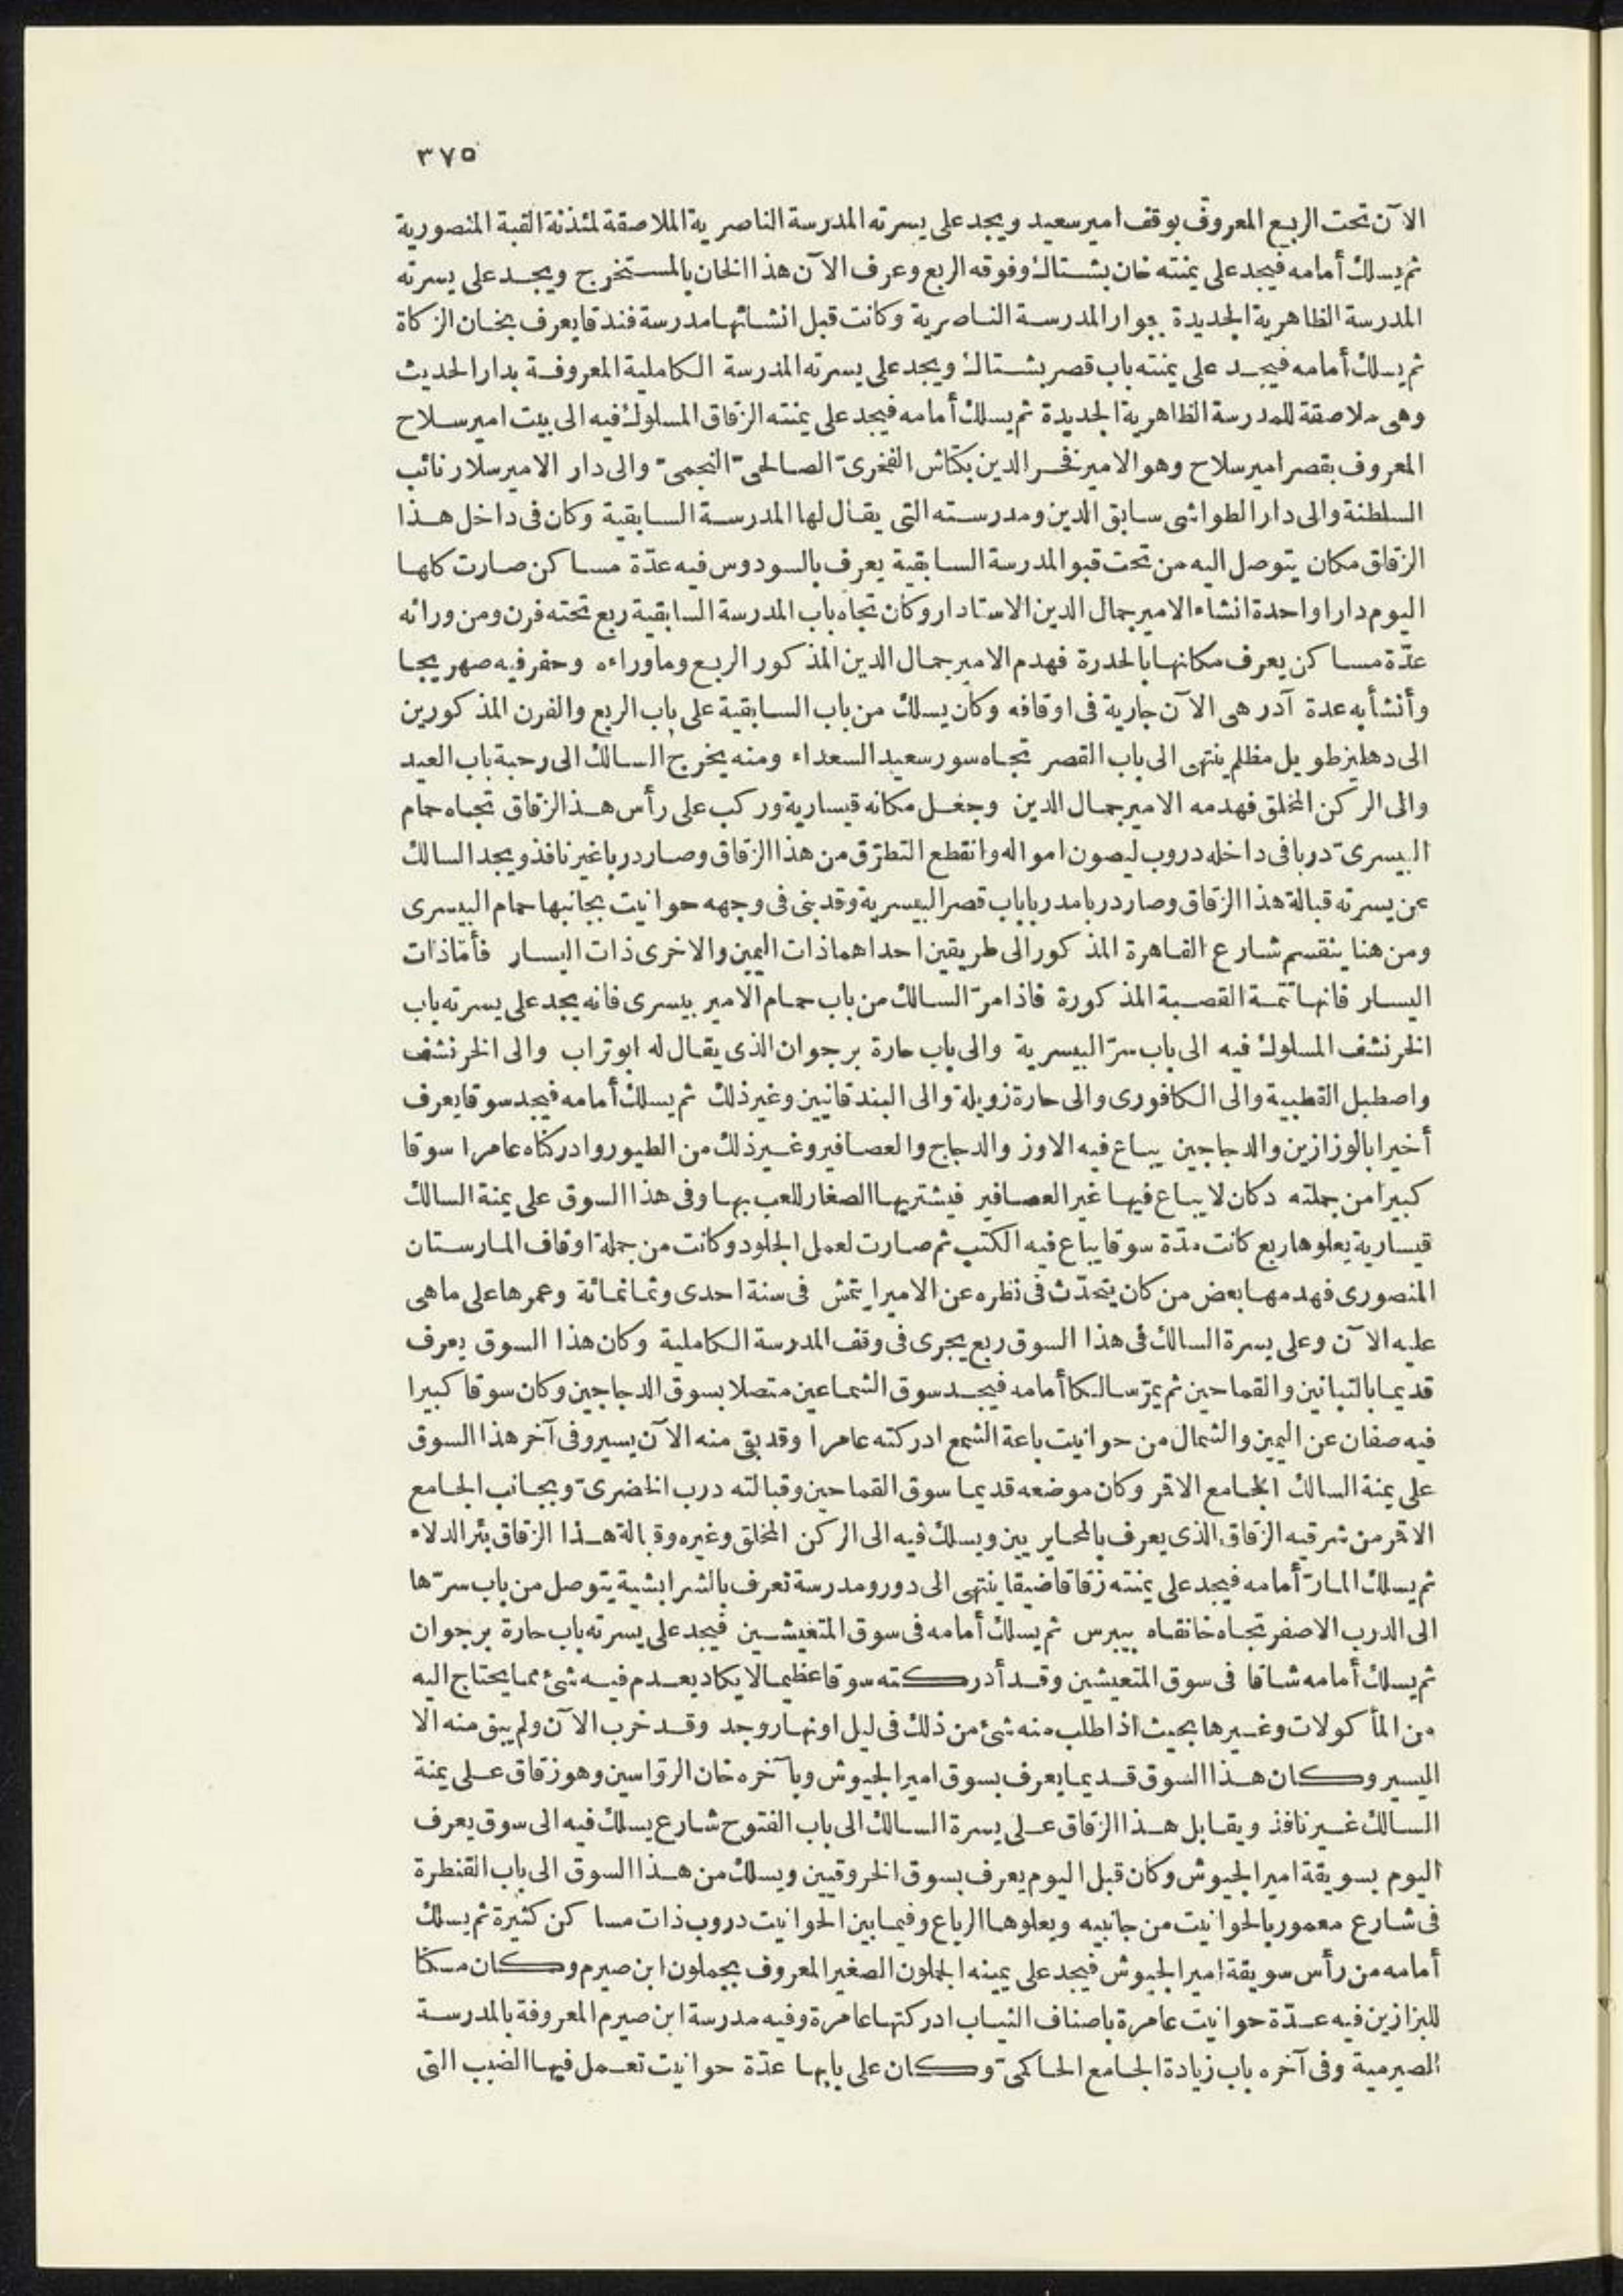 ٣٧٥
الآن تحت الربع المعروف بوقف امير سعيد ويجد على يسرته المدرسة الناصرية الملاصقة لمئذنة القبة المنصورية
ثم يسلك أمامه فيجد على يمنته خان بشتاك وفوقه الربع وعرف الآن هذا الخان بالمستخرج ويجد على يسرته
المدرسة الظاهرية الجديدة بجوار المدرسة الناصرية وكانت قبل انشائها مدرسة فندقا يعرف بخان الزكاة
ثم يسلك أمامه فيجد على يمنته باب قصر بشتاك ويجد على يسرته المدرسة الكاملية المعروفة بدار الحديث
وهى ملاصقة للمدرسة الظاهرية الجديدة ثم يسلك أمامه فيجد على يمنته الزقاق المسلوك فيه الى بيت امير سلاح
المعروف بقصر امير سلاح وهو الامير فخر الدين بكتاش الفخرىّ الصالحىّ النجمىّ والى دار الامير سلار نائب
السلطنة والى دار الطواشى سابق الدين ومدرسته التى يقال لها المدرسة السابقية وكان فى داخل هذا
الزقاق مكان يتوصل اليه من تحت قبو المدرسة السابقية يعرف بالسودوس فيه عدّة مساكن صارت كلها
اليوم دارا واحدة انشاء الامير جمال الدين الاستادار وكان تجاه باب المدرسة السابقية ربع تحته فرن ومن ورائه
عدّة مساكن يعرف مكانها بالحدرة فهدم الامير جمال الدين المذكور الربع وما وراءه وحفر فيه صهريجا
وأنشأ به عدة آدر هى الآن جارية فى اوقافه وكان يسلك من باب السابقية على باب الربع والفرن المذكورين
الى دهليز طويل مظلم ينتهى الى باب القصر تجاه سور سعيد السعداء ومنه يخرج السالك الى رحبة باب العيد
والى الركن المخلق فهدمه الامير جمال الدين وجعل مكانه قيسارية وركب على رأس هذا الزقاق تجاه حمام
البيسرىّ دربا فى داخله دروب ليصون امواله وانقطع التطرّق من هذا الزقاق وصار دربا غير نافذ ويجد السالك
عن يسرته قبالة هذا الزقاق وصار دربا مدربا باب قصر البيسرية وقد بنى فى وجهه حوانيت بجانبها حمام البيسرى
ومن هنا ينقسم شارع القاهرة المذكور الى طريقين احداهما ذات اليمين والاخرى ذات اليسار فأمّا ذات
اليسار فانها تتمة القصبة المذكورة فاذا مرّ السالك من باب حمام الامير بيسرى فانه يجد على يسرته باب
الخرنشف المسلوك فيه الى باب سرّ البيسرية والى باب حارة برجوان الذى يقال له ابو تراب والى الخرنشف
واصطبل القطبية والى الكافورى والى حارة زويلة والى البندقانيين وغير ذلك ثم يسلك أمامه فيجد سوقا يعرف
أخيرا بالوزازين والدجاجين يباع فيه الاوز والدجاج والعصافير وغير ذلك من الطيور وادركناه عامرا سوقا
كبيرا من جملته دكان لا يباع فيها غير العصافير فيشتريها الصغار للعب بها وفى هذا السوق على يمنة السالك
قيسارية يعلوها ربع كانت مدّة سوقا يباع فيه الكتب ثم صارت لعمل الجلود وكانت من جملة اوقاف المارستان
المنصورى فهدمها بعض من كان يتحدّث فى نظره عن الامير ايتمش فى سنة احدى وثمانمائة وعمرها على ما هى
عليه الآن وعلى يسرة السالك فى هذا السوق ربع يجرى فى وقف المدرسة الكاملية وكان هذا السوق يعرف
قديما بالتبانين والقماحين ثم يمرّ سالكا أمامه فيجد سوق الشماعين متصلا بسوق الدجاجين وكان سوقا كبيرا
فيه صفان عن اليمين والشمال من حوانيت باعة الشمع ادركته عامرا وقد بقى منه الآن يسير وفى آخر هذا السوق
على يمنة السالك الجامع الاقمر وكان موضعه قديما سوق القماحين وقبالته درب الخضرىّ وبجانب الجامع
الاقمر من شرقيه الزقاق الذى يعرف بالمحايريين ويسلك فيه الى الركن المخلق وغيره وقبالة هذا الزقاق بئر الدلاء
ثم يسلك المارّ أمامه فيجد على يمنته زقاقا ضيقا ينتهى الى دور ومدرسة تعرف بالشرابشية يتوصل من باب سرّها
الى الدرب الاصفر تجاه خانقاه بيبرس ثم يسلك أمامه فى سوق المتعيشين فيجد على يسرته باب حارة برجوان
ثم يسلك أمامه شاقا فى سوق المتعيشين وقد أدركته سوقا عظيما لا يكاد يعدم فيه شئ مما يحتاج اليه
من المأكولات وغيرها بحيث اذا طلب منه شئ من ذلك فى ليل او نهار وجد وقد خرب الآن ولم يبق منه الا
اليسير وكان هذا السوق قديما يعرف بسوق امير الجيوش وبآخره خان الرواسين وهو زقاق على يمنة
السالك غير نافذ ويقابل هذا الزقاق على يسرة السالك الى باب الفتوح شارع يسلك فيه الى سوق يعرف
اليوم بسويقة امير الجيوش وكان قبل اليوم يعرف بسوق الخروقيين ويسلك من هذا السوق الى باب القنطرة
فى شارع معمور بالحوانيت من جانبيه ويعلوها الرباع وفيما بين الحوانيت دروب ذات مساكن كثيرة ثم يسلك
أمامه من رأس سويقة امير الجيوش فيجد على يمينه الجملون الصغير المعروف بجملون ابن صيرم وكان مسكنا
للبزازين فيه عدّة حوانيت عامرة باصناف الثياب ادركتها عامرة وفيه مدرسة ابن صيرم المعروفة بالمدرسة
الصيرمية وفى آخره باب زيادة الجامع الحاكمىّ وكان على بابها عدّة حوانيت تعمل فيها الضبب التى